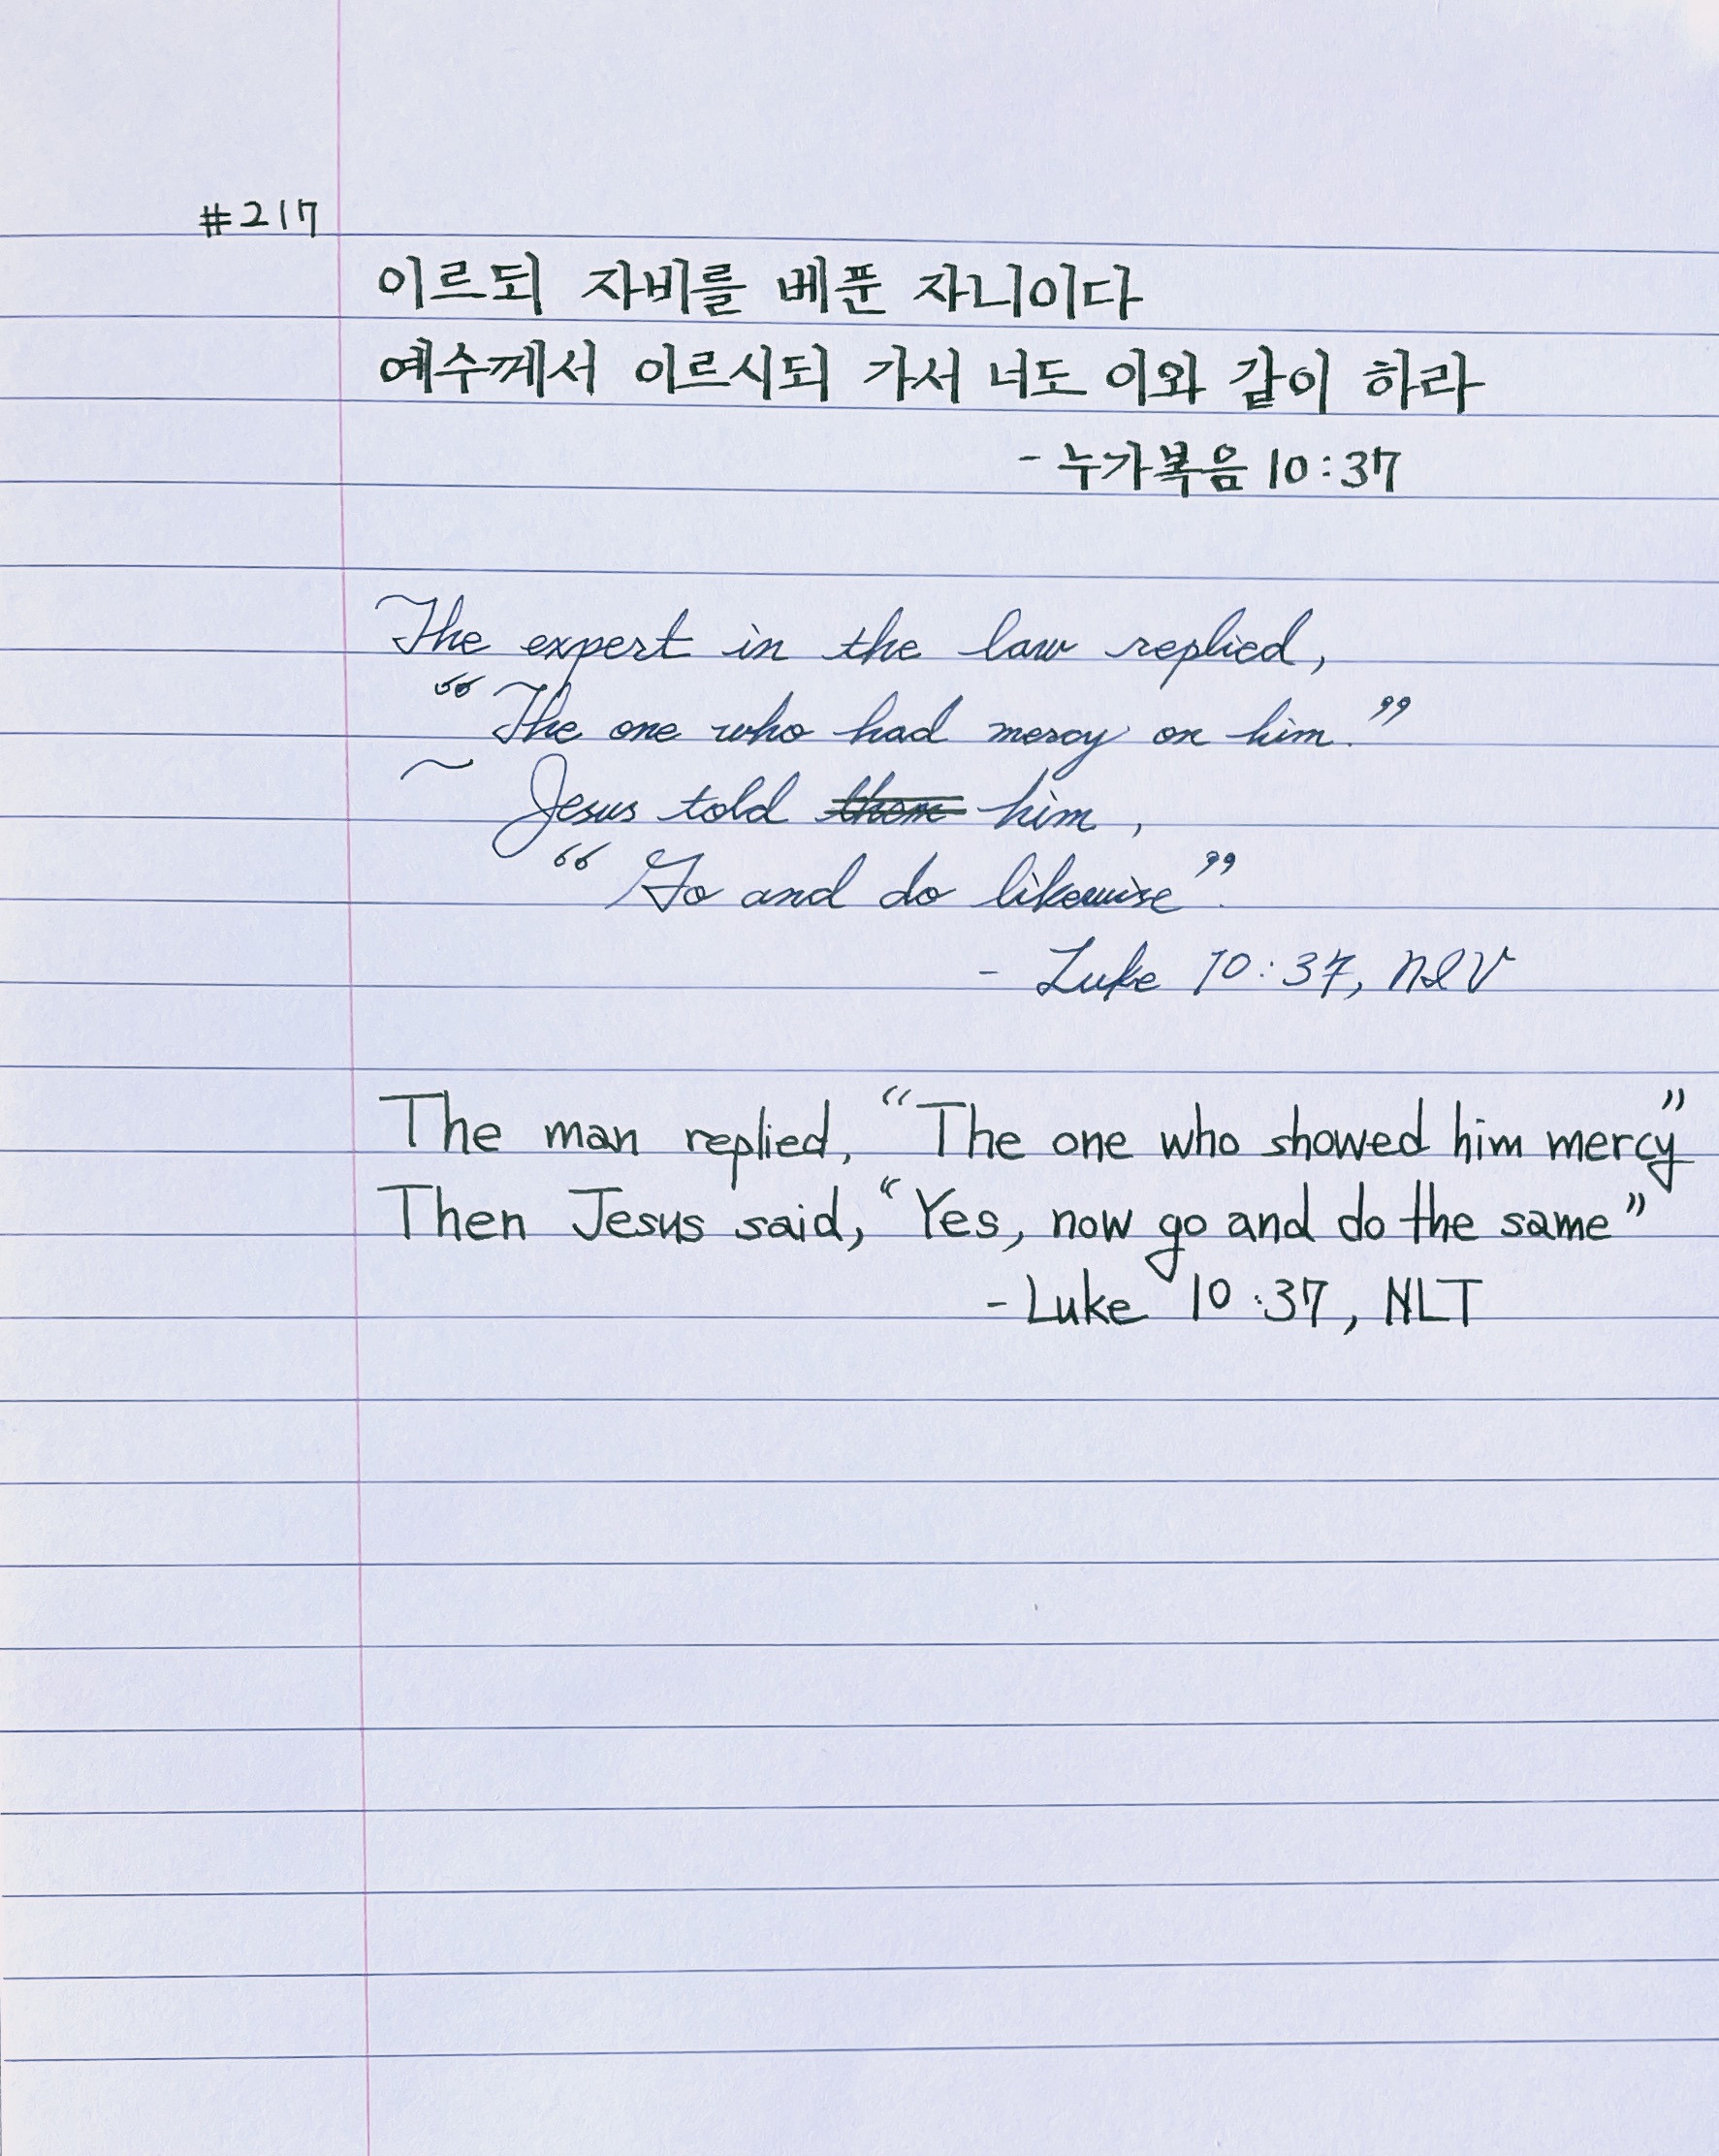 #217
이르되 자비를 베푼 자니이다
예수께서 이르시되 가서 너도 이와 같이 하라
- 누가복음 10:37
The expert in the law replied,
“The one who had mercy on him.”
Jesus told ~~them~~ him,
“Go and do likewise”.
- Luke 10:37, NIV
The man replied, “The one who showed him mercy”
Then Jesus said, “Yes, now go and do the same”
- Luke 10:37, NLT